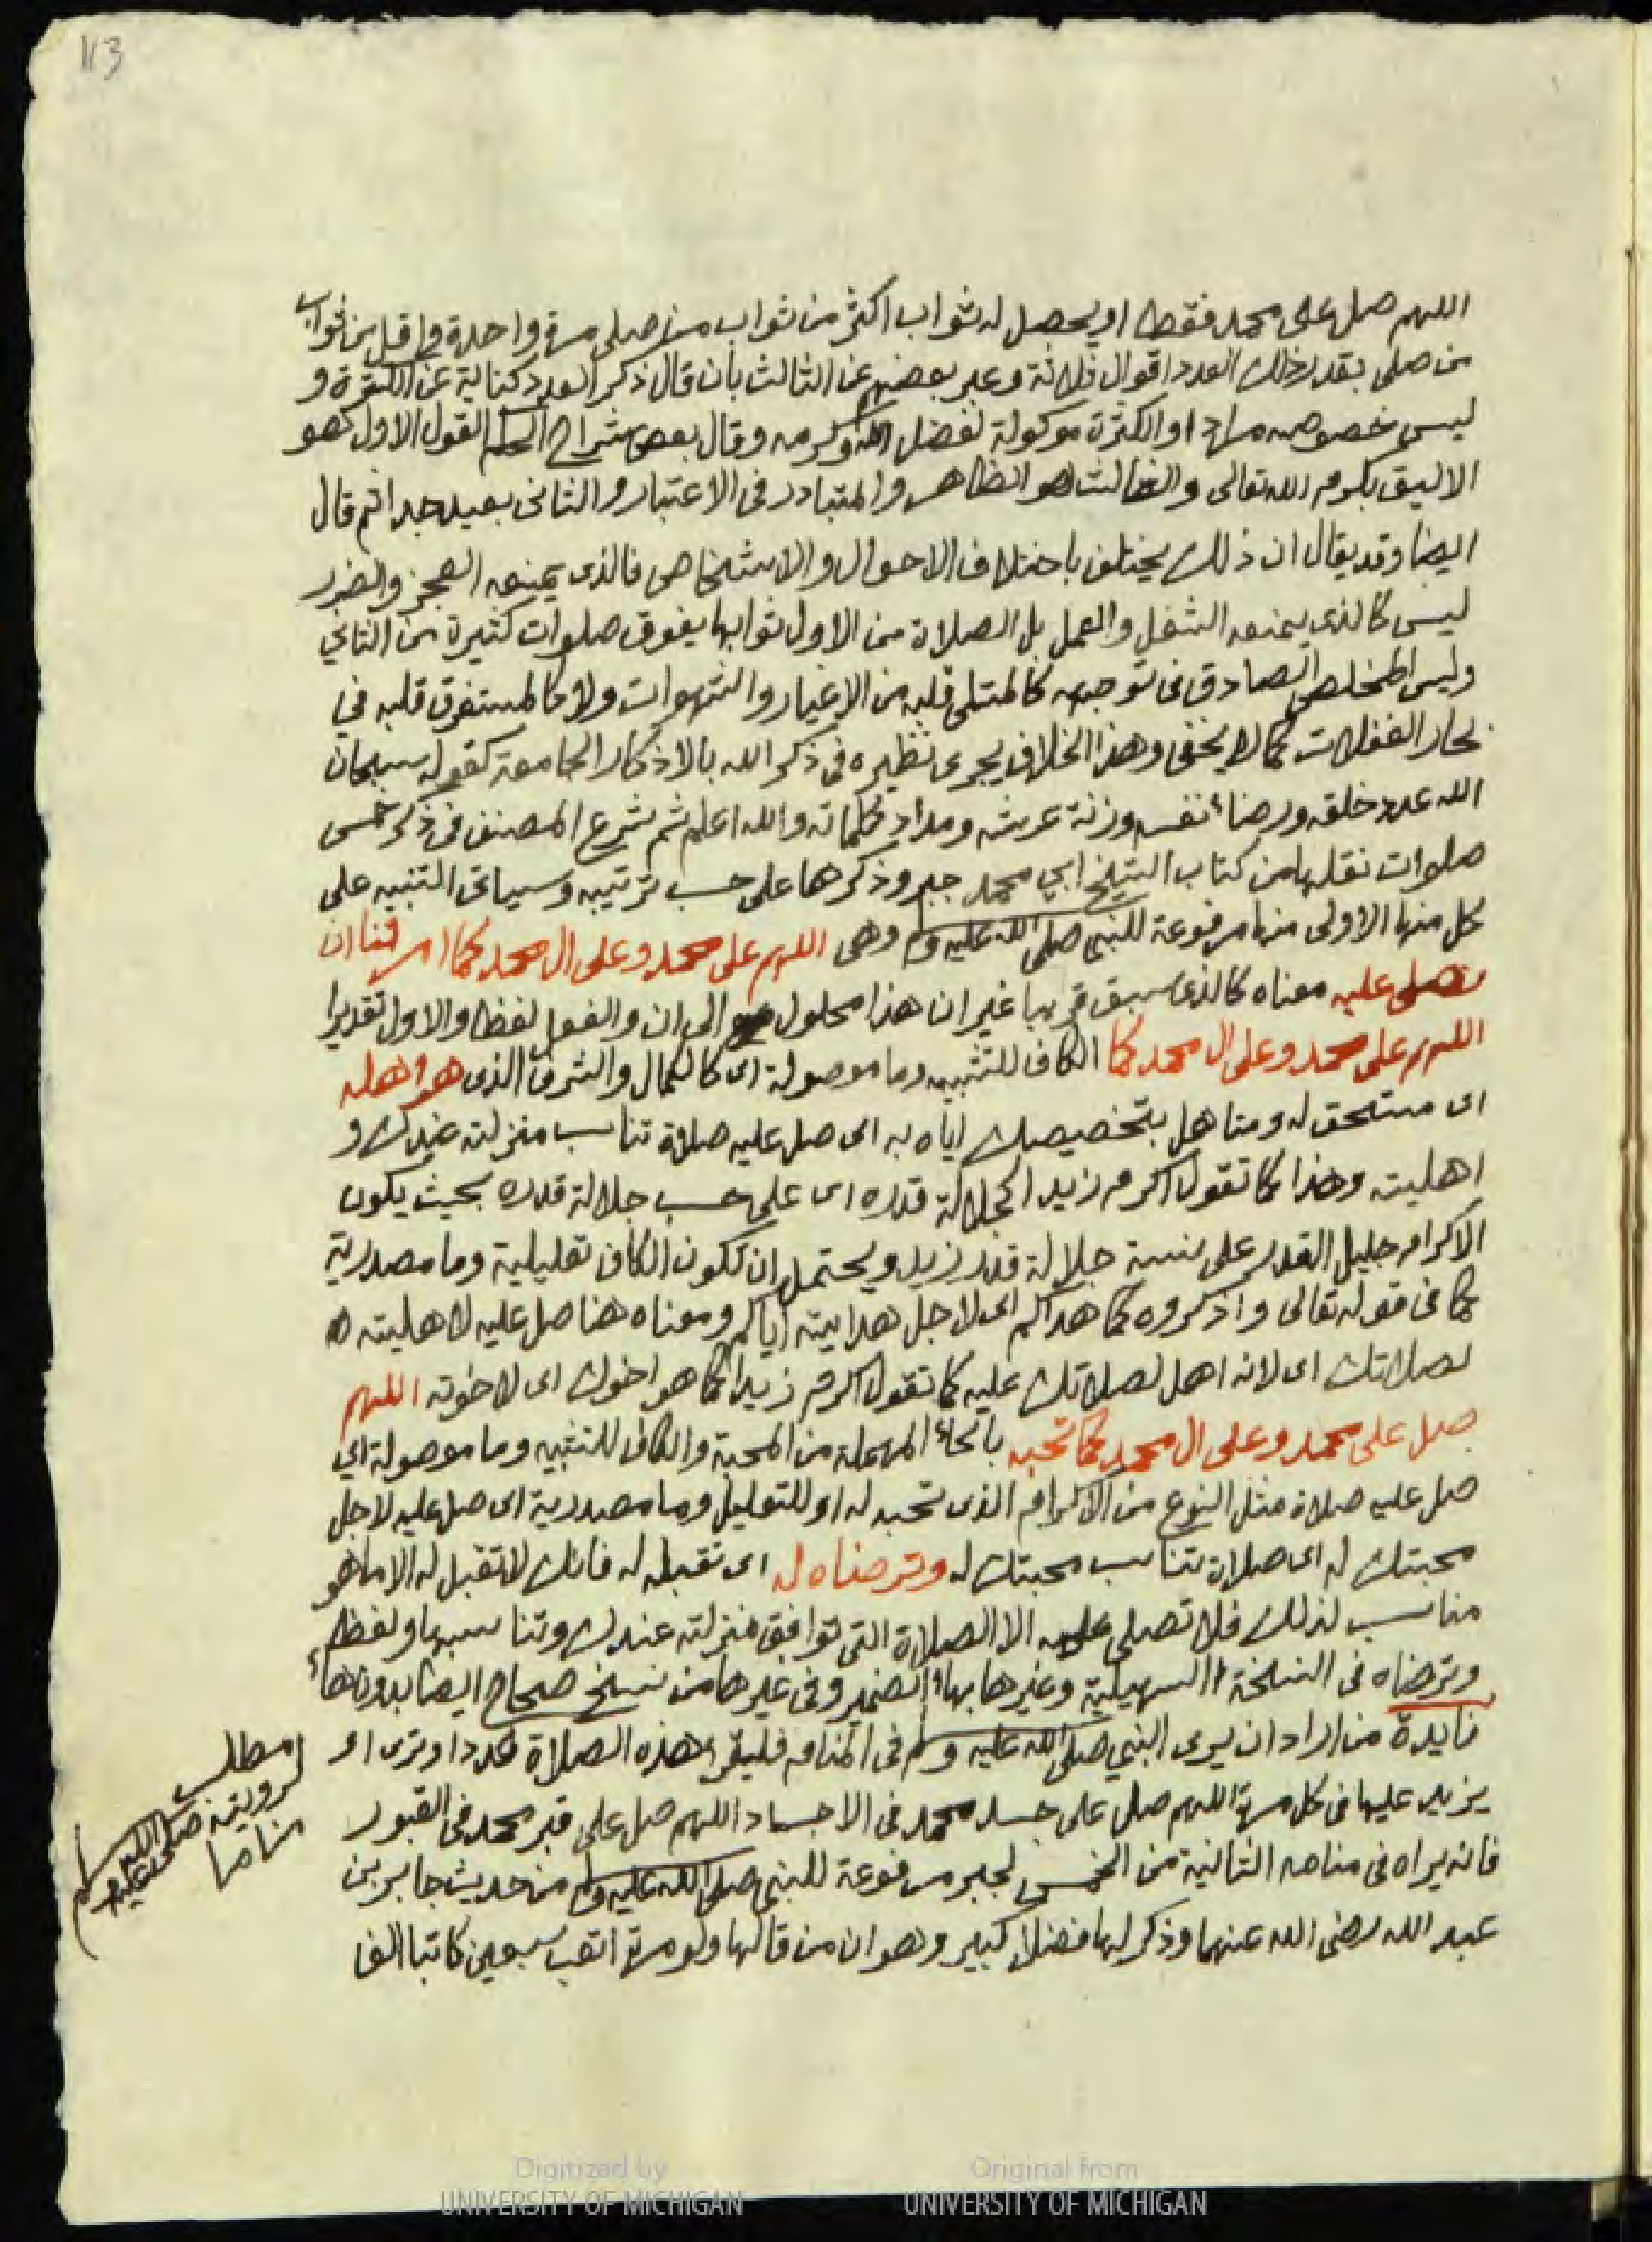 113
اللهم صل على محمد فقط او يحصل له ثواب اكثر من ثواب من صلى مرة واحدة واقل من ثواب
من صلى بقدر ذلك العدد اقوال ثلاثة وعبر بعضهم عن الثالث بأن قال ذكر العدد كناية عن الكثرة و
ليس خصوصه مراد او الكثرة موكولة لفضل الله وكرمه وقال بعض شراح القول الاول هو
الاليق بكرم الله تعالى والثالث هو الظاهر والمتبادر في الاعتبار والثاني بعيد جدا ثم قال
ايضا وقد يقال ان ذلك يختلف باختلاف الاحوال والاشخاص فالذى يمنعه العجز والضرر
ليس كالذى يمنعه الشغل والعمل بل الصلاة من الاول ثوابها يفوق صلوات كثيرة من الثاني
وليس المخلص الصادق في توجهه كالممتلى قلبه من الاغيار والشهوات ولا كالمستغرق قلبه في
بحار الغفلات كما لا يخفى وهذا الخلاف يجرى نظيره في ذكر الله بالاذكار الجامعة كقوله سبحان
الله عدد خلقه ورضاء نفسه وزنة عرشه ومداد كلماته والله اعلم ثم شرع المصنف في ذكر خمس
صلوات نقلها من كتاب الشيخ ابي محمد جبر وذكرها على حسب ترتيبه وسياتى التنبيه على
كل منها الاولى منها مرفوعة للنبي صلى الله عليه وسلم وهى اللهم على محمد وعلى ال محمد كما امرتنا ان
نصلى عليه معناه كالذى سبق قريبا غير ان هذا محلول الى ان والفعل لفظا والاول تقديرا
اللهم على محمد وعلى ال محمد كما الكاف للتشبيه وما موصولة اى كالكمال والشرف الذى هو اهله
اى مستحق له ومتاهل بتخصيصك اياه به اى صل عليه صلاة تناسب منزلته عندك و
اهليته وهذا كما تقول اكرم زيدا كجلالة قدره اى على حسب جلالة قدره بحيث يكون
الاكرام جليل القدر على نسبة جلالة قدر زيد ويحتمل ان تكون الكاف تعليلية وما مصدرية
كما في قوله تعالى واذكروه كما هداكم اى لاجل هدايته اياكم ومعناه هنا صل عليه لاهليته
لصلاتك اى لانه اهل لصلاتك عليه كما تقول اكرم زيدا كما هو اخوك اى لاخوته اللهم
صل على محمد وعلى ال محمد كما تحبه بالحاء المهملة من المحبة والكاف للتشبيه وما موصولة اي
صل عليه صلاة مثل النوع من الاكرام الذى تحبه له او للتعليل وما مصدرية اى صل عليه لاجل
محبتك له اى صلاة تناسب محبتك له وترضاه له اى تقبله له فانك لا تقبل له الا ما هو
مناسب لذلك فلا تصلى عليه الا الصلاة التى توافق منزلته عندك وتناسبها ولفظ
وترضاه في النسخة السهيلية وغيرها بهاء الضمير وفي غيرها من نسخ صحاح ايضا بدون هاء
فايدة من اراد ان يرى النبي صلى الله عليه وسلم في المنام فليقرأ هذه الصلاة عددا وترى او
يزيد عليها في كل مرة اللهم صل على جسد محمد في الاجساد اللهم صل على قبر محمد في القبور
فانه يراه في منامه الثانية من الخمس لجبر مرفوعة للنبي صلى الله عليه وسلم من حديث جابر بن
عبد الله رضى الله عنهما وذكر لها فضلا كبير وهو ان من قالها ولو مرة اتعب سبعين كاتبا الفا
مطلب
لرويته صلى الله عليه وسلم
مناما
Digitized by
UNIVERSITY OF MICHIGAN
Original from
UNIVERSITY OF MICHIGAN